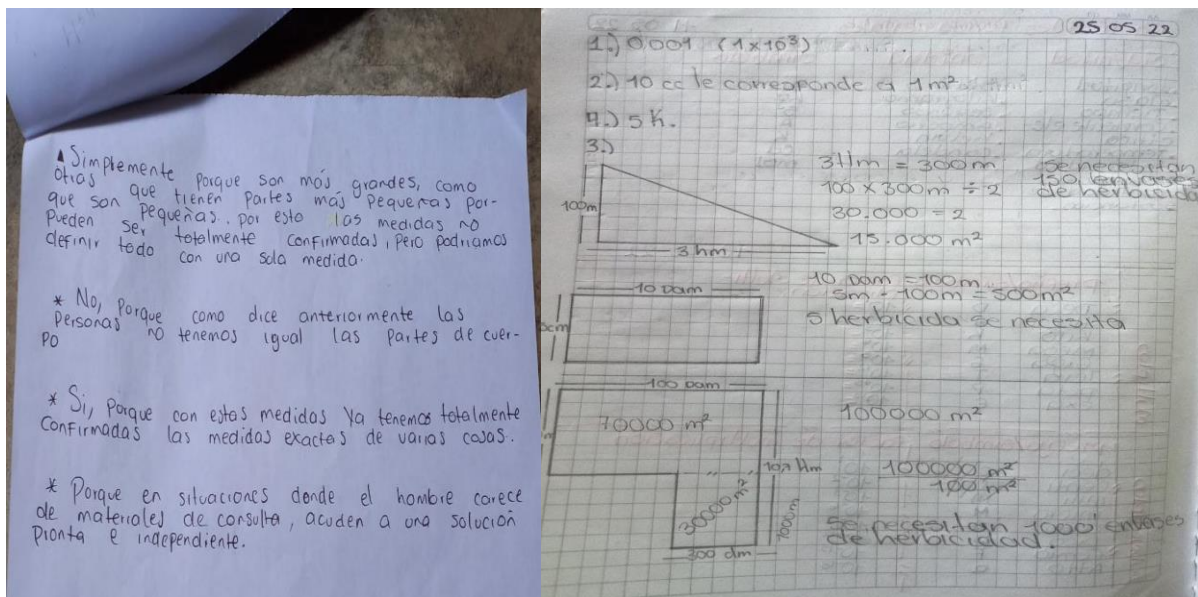 Simplemente porque son más grandes, como
otras que tienen partes más pequeñas por-
que son pequeñas, por esto las medidas no
pueden ser totalmente confirmadas, pero podriamos
definir todo con una sola medida.
* No, porque como dice anteriormente las
personas no tenemos igual las partes de cuer-
po
* Si, porque con estas medidas ya tenemos totalmente
confirmadas las medidas exactas de varias cosas.
* Porque en situaciones donde el hombre carece
de materiales de consulta, acuden a una solución
pronta e independiente.
25 05 22
1.) 0.001 (1x10³)
2.) 10 cc le corresponde a 1m²
4.) 5 K.
3.)
100m
3 hm
3Hm = 300m
100 x 300m ÷ 2
30.000 = 2
15.000 m²
se necesitan
150 envases
de herbicida
10 Dam
10 Dam = 100m
5m - 100m = 500m²
5 herbicida se necesita
100 Dam
70000 m²
30000m²
1000m
300 dm
100000 m²
100000 m²
100 m²
se necesitan 1000 enbases
de herbicidad.